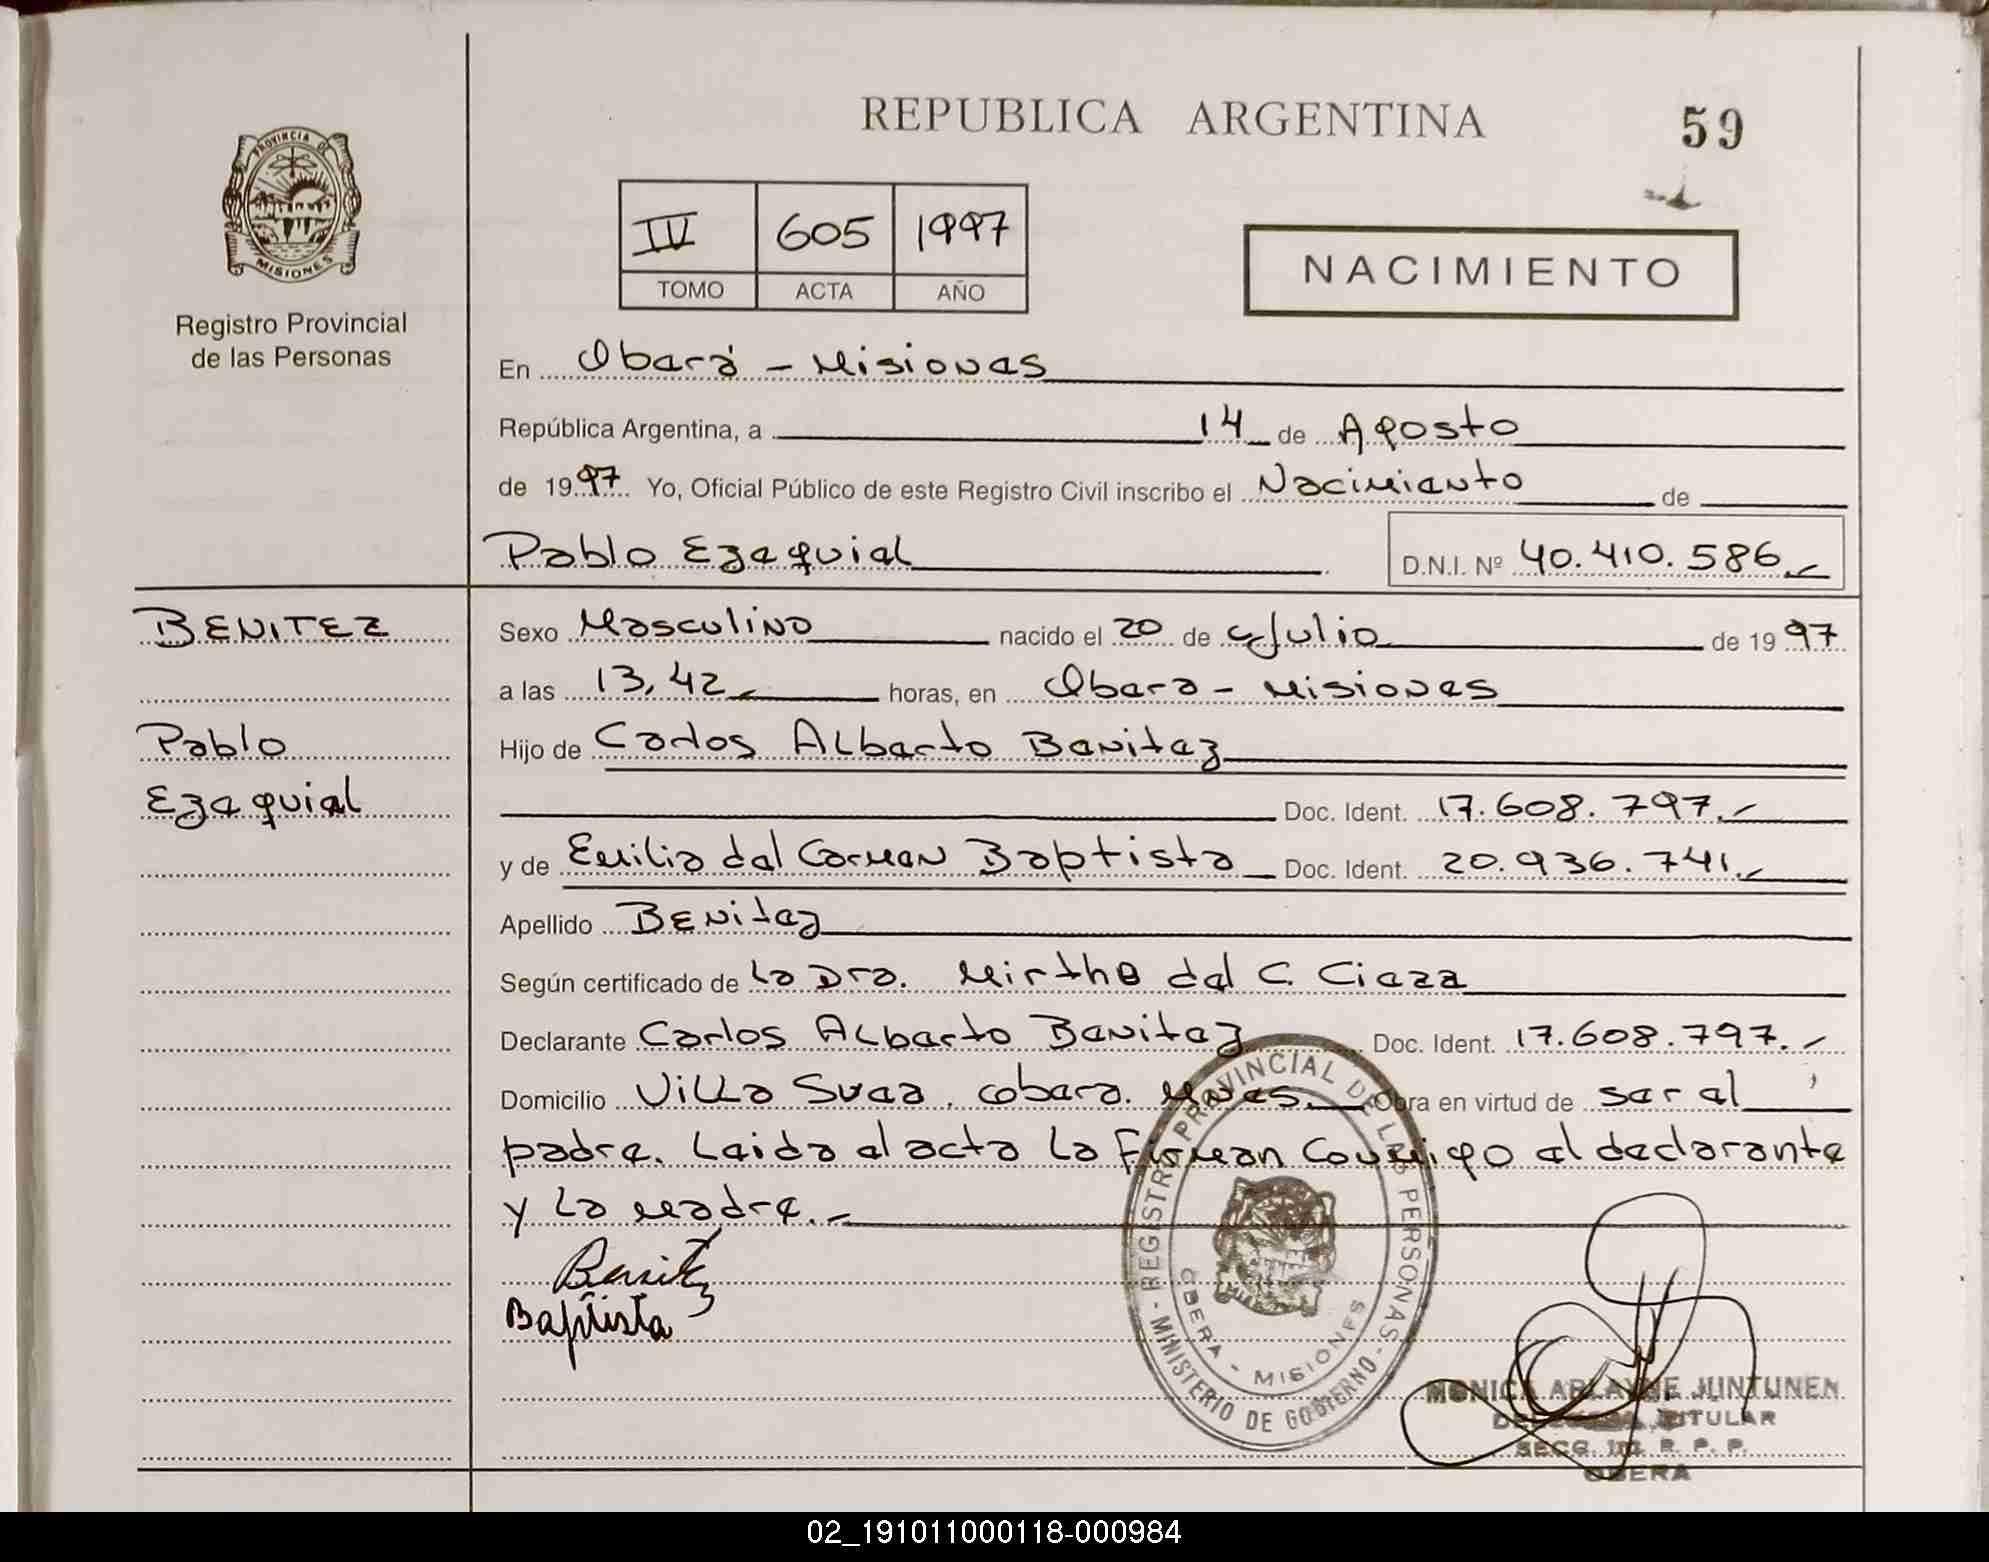 REPUBLICA ARGENTINA
59
PROVINCIA DE
MISIONES
Registro Provincial
de las Personas
IV 605 1997
TOMO ACTA AÑO
NACIMIENTO
En Oberá - Misiones
República Argentina, a 14 de Agosto
de 1997 Yo, Oficial Público de este Registro Civil inscribo el Nacimiento de
Pablo Ezequiel D.N.I. Nº 40.410.586.-
BENITEZ
Pablo
Ezequiel
Sexo Masculino nacido el 20 de Julio de 1997
a las 13,42 horas, en Obera - Misiones
Hijo de Carlos Alberto Benitez
Doc. Ident. 17.608.797.-
y de Emilia del Carmen Baptista Doc. Ident. 20.936.741.-
Apellido BENitez
Según certificado de la Dra. Mirtha del C. Cieza
Declarante Carlos Alberto Benitez Doc. Ident. 17.608.797.-
Domicilio Villa Svea, obera. Mnes. Obra en virtud de ser el
padre. Leida el acta la Firman Conmigo el declarante
y la madre.-
Benitez
Baptista
REGISTRO PROVINCIAL DE LAS PERSONAS - MINISTERIO DE GOBIERNO -
OBERA - MISIONES
MONICA JUNTUNEN
TITULAR
SECC. R. P. P.
OBERA
02_191011000118-000984